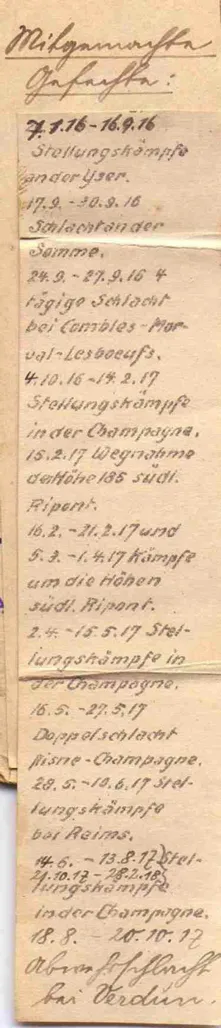 Mitgemachte
Gefechte:
7.1.16-16.9.16
Stellungskämpfe
an der Yser.
17.9.-30.9.16
Schlacht an der
Somme.
24.9.-27.9.16 4
tägige Schlacht
bei Combles-Mor-
val-Lesboeufs.
4.10.16-14.2.17
Stellungskämpfe
in der Champagne.
15.2.17 Wegnahme
der Höhe 185 südl.
Ripont.
16.2.-21.2.17 und
5.3.-1.4.17 Kämpfe
um die Höhen
südl. Ripont.
2.4.-15.5.17 Stel-
lungskämpfe in
der Champagne.
16.5.-27.5.17
Doppelschlacht
Aisne-Champagne.
28.5.-10.6.17 Stel-
lungskämpfe
bei Reims.
14.6.-13.8.17 } Stel-
21.10.17-28.2.18 }
lungskämpfe
in der Champagne.
18.8. - 20.10.17
Abwehrschlacht
bei Verdun.